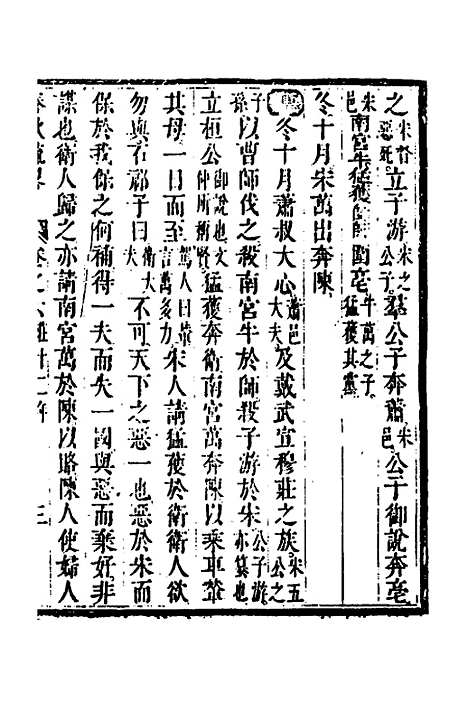 之宋督惡死立子游宋之公子羣公子奔蕭宋邑公子御說奔亳
宋邑南宮牛猛獲帥師圍亳牛萬之子猛獲其黨
冬十月宋萬出奔陳
冬十月蕭叔大心蕭邑大夫及戴武宣穆莊之族宋五公之
子孫以曹師伐之殺南宮牛於師殺子游於宋公子游亦篡也
立桓公御說也文仲所謂賢猛獲奔衛南宮萬奔陳以乘車輦
其母一日而至駕人曰輦言萬多力宋人請猛獲於衛衛人欲
勿與石祁子曰衛大夫不可天下之惡一也惡於宋而
保於我保之何補得一夫而失一國與惡而棄好非
謀也衛人歸之亦請南宮萬於陳以賂陳人使婦人
卷之六莊十二年 三